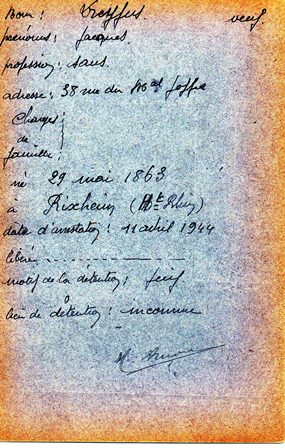 Nom : Dreyfus veuf
prénoms : Jacques.
profession : sans.
adresse : 38 rue du Mal Joffre
Charges
de
famille :
né 29 mai 1863
à Rixheim (Ht Rhin)
date d'arrestation : 11 avril 1944
libéré
motif de la détention : juif.
lieu de détention : inconnu